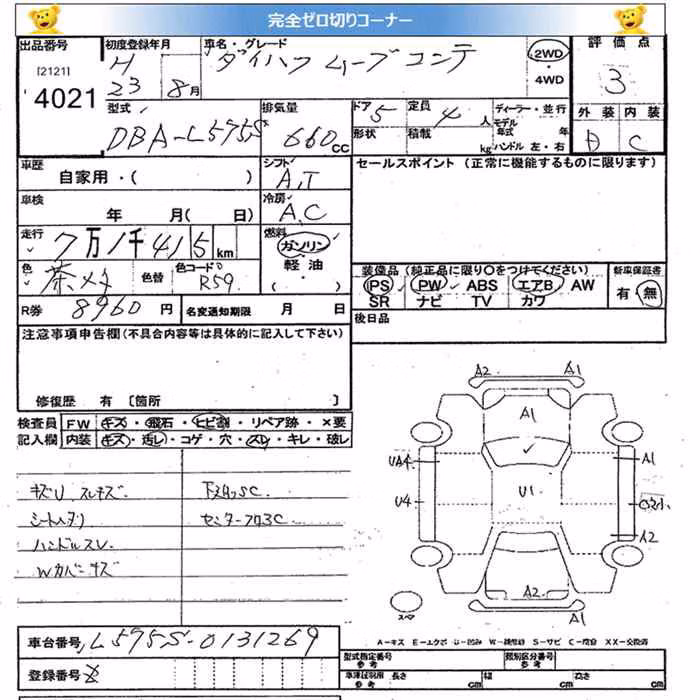 完全ゼロ切りコーナー
出品番号 初度登録年月 車名・グレード 評価点
[2121] H 23 8月 ダイハツ ムーブコンテ 2WD ・ 4WD 3
4021
型式 排気量 ドア 定員 ディーラー・並行 外装 内装
DBA-L575S 660cc 5 4人 モデル年式 年 D C
形状 積載 kg ハンドル 左・右
車歴 シフト セールスポイント (正常に機能するものに限ります)
自家用・( ) A,T
車検 冷房
年 月( 日) A,C
走行 燃料
7万1千415km ガソリン・
軽油・
( )
色 色替 色コードNo 装備品 (純正品に限り○をつけてください) 新車保証書
茶メタ R59 PS PW ABS エアB AW 有・無
SR ナビ TV カワ
R券 8960円 名変通知期限 月 日 後日品
注意事項申告欄(不具合内容等は具体的に記入して下さい)
修復歴 有 [箇所 ]
検査員 FW キズ・飛石・ヒビ割・リペア跡・×要
記入欄 内装 キズ・汚レ・コゲ・穴・スレ・キレ・破レ
キズU スレキズ 下廻りSC
シートヘタリ センターフロアC
ハンドルスレ
Wカバーキズ
A2 A1
A1
UA4 A1
U4 U1
A2
A2
A1
スペア
A-キズ E-エクボ U-凹み W-補修跡 S-サビ C-腐食 XX-交換済
車台番号 L575S-0131269
登録番号
型式指定番号 参考 類別区分番号 参考
車庫証明用 参考 長さ cm 幅 cm 高さ cm